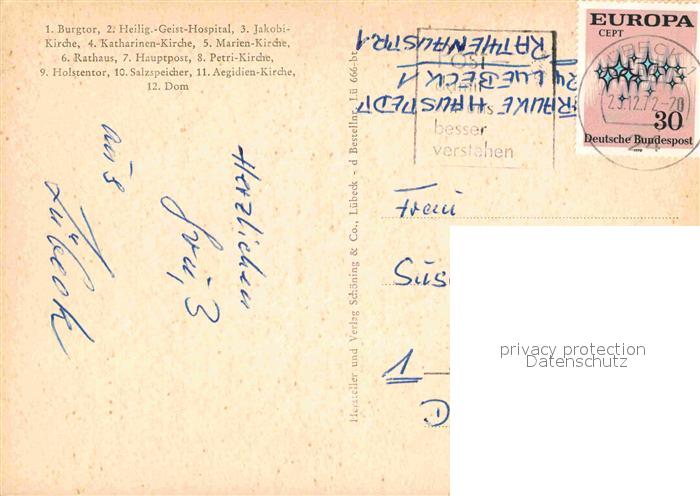 1. Burgtor, 2. Heilig.-Geist-Hospital, 3. Jakobi-
Kirche, 4. Katharinen-Kirche, 5. Marien-Kirche,
6. Rathaus, 7. Hauptpost, 8. Petri-Kirche,
9. Holstentor, 10. Salzspeicher, 11. Aegidien-Kirche,
12. Dom
Herzlichen
Gruß
aus
Lübeck
Hersteller und Verlag Schöning & Co., Lübeck - d Bestellnr. Lü 666-bt
FRAUKE HAUSTEDT
24 LUEBECK 1
RATHENAUSTR 1
besser
verstehen
EUROPA
CEPT
30
Deutsche Bundespost
LÜBECK
23.12.72-20
24
Frau
Sus
1
D
privacy protection
Datenschutz